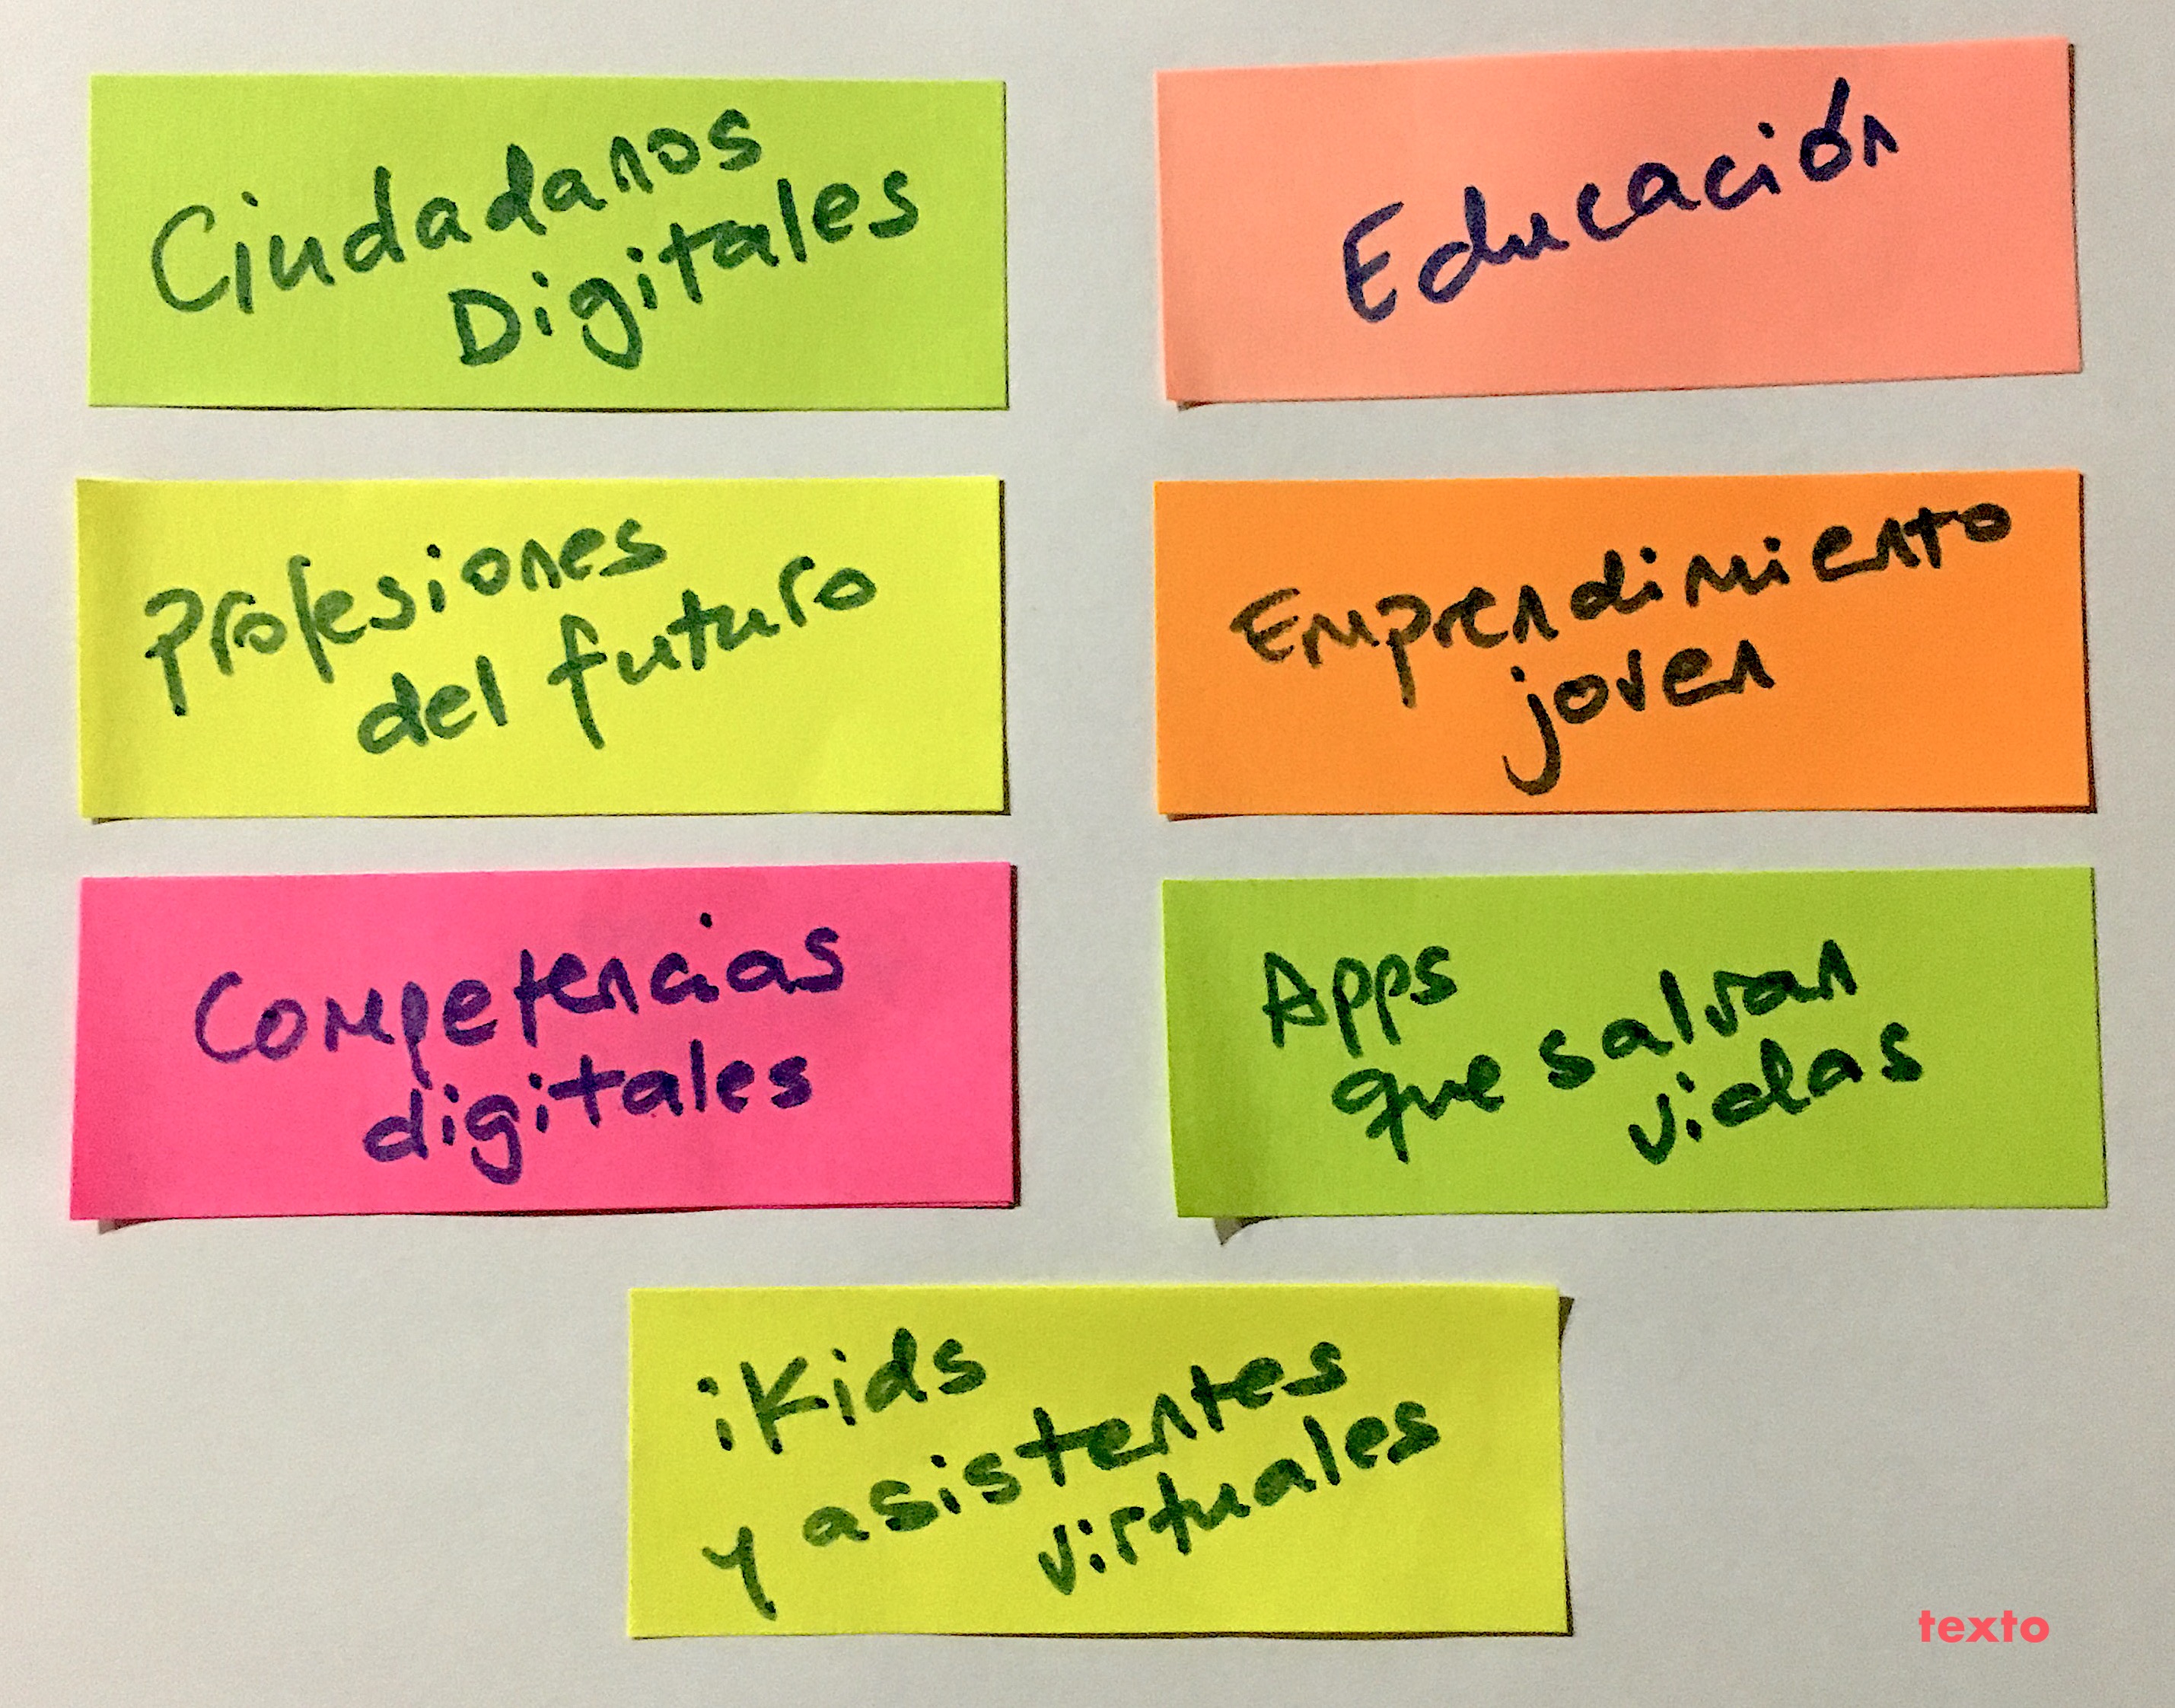 Ciudadanos
Digitales
Educación
Profesiones
del futuro
Emprendimiento
joven
Competencias
digitales
Apps
que salvan
vidas
iKids
y asistentes
virtuales
texto